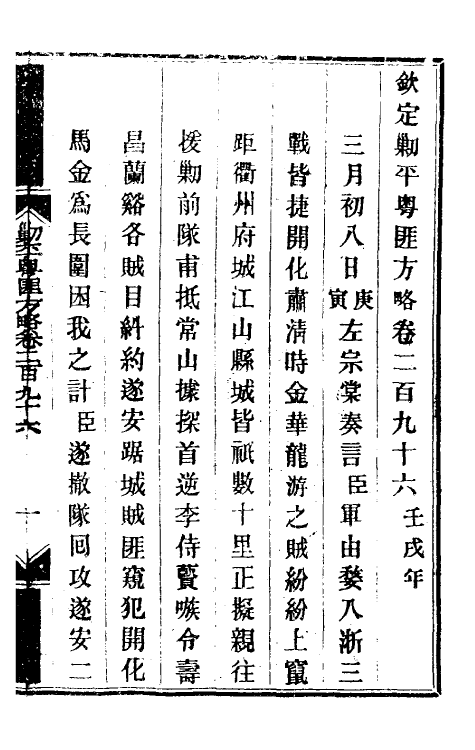 欽定剿平粵匪方略卷二百九十六 壬戌年
三月初八日庚寅左宗棠奏言臣軍由婺入浙三
戰皆捷開化肅清時金華龍游之賊紛紛上竄
距衢州府城江山縣城皆祇數十里正擬親往
援勦前隊甫抵常山據探首逆李侍賢嗾令壽
昌蘭谿各賊目糾約遂安踞城賊匪窺犯開化
馬金為長圍困我之計臣遂撤隊回攻遂安二
剿平粵匪方略卷二百九十六 一